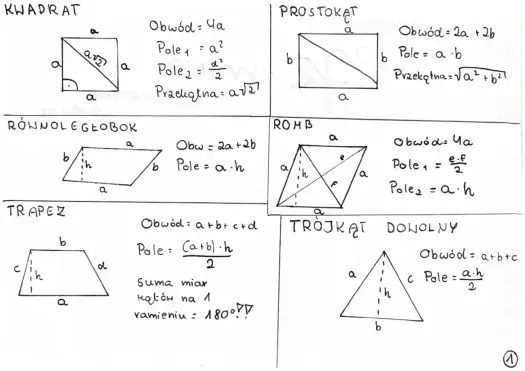 KWADRAT
a
a
a
a
a√2
Obwód = 4a
Pole₁ = a²
Pole₂ = d²/2
Przekątna = a√2
PROSTOKĄT
a
b
b
a
Obwód = 2a + 2b
Pole = a·b
Przekątna = √a² + b²
RÓWNOLEGŁOBOK
a
b
h
b
a
Obw = 2a+2b
Pole = a·h
ROMB
a
a
e
h
f
a
a
Obwód = 4a
Pole₁ = e·f/2
Pole₂ = a·h
TRAPEZ
b
c
h
d
a
Obwód = a+b+c+d
Pole = (a+b)·h/2
Suma miar
kątów na 1
ramieniu = 180°!!
TRÓJKĄT DOWOLNY
a
h
c
b
Obwód = a+b+c
Pole = a·h/2
1